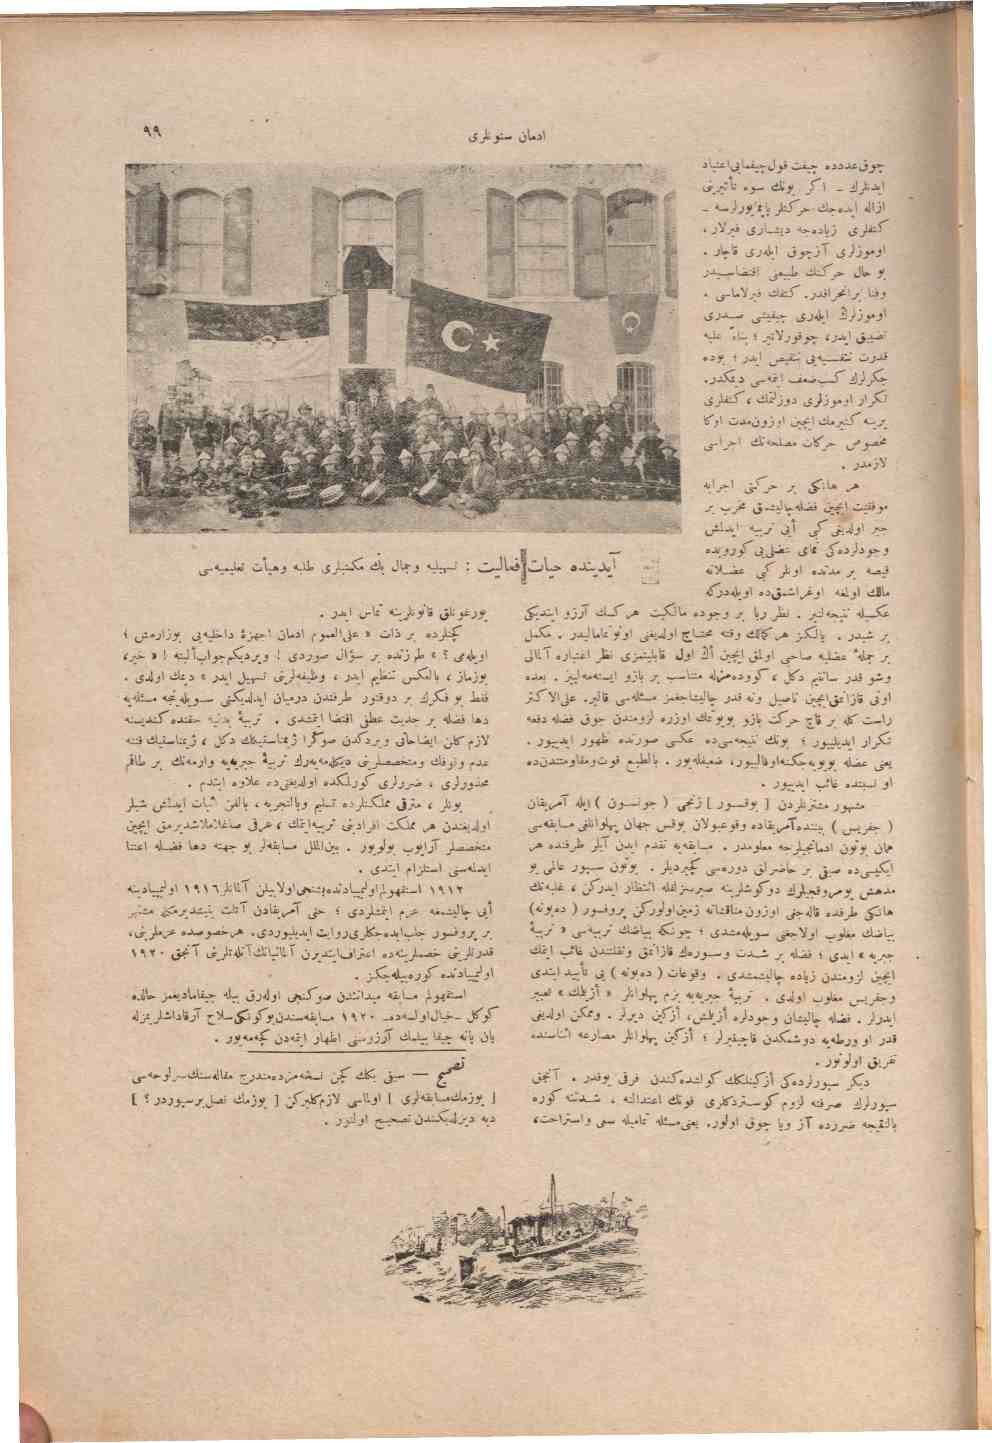 ادمان سئونلری
٩٩
چوق عددده چیفت قول چیفمایی اعتیاد
ایدنلرك ـ اکر بونك سوء تأثیرینی
ازاله ایده‌جك حرکتلر یاپمیورلرسه ـ
کتفلری زیاده‌جه دیشاری فیرلار ،
اوموزلری آز چوق ایله‌ری قاچار .
بو حال حرکتك طبیعی اقتضاسیدر
وفنا بر انحرافدر. کتفك فیرلاماسی .
اوموزلرك ایله‌ری چیقیشی صدری
تضییق ایدر، چوقورلاتیر ؛ بناءً علیه
قدرت تنفسیه‌یی تنقیص ایدر ؛ بوده
جکرلرك کسب ضعف ایتمه‌سی دیمکدر.
تکرار اوموزلری دوزلتمك ، کتفلری
یرینه کتیرمك ایچین اوزون مدت اوکا
مخصوص حرکات مصلحه‌نك اجراسی
لازمدر .
هر هانکی بر حرکتی اجرایه
موفقیت ایچین فضله چالیشمق مخرب بر
جبر اولدیغی کبی أیی تربیه ایدلمش
وجودلرده‌کی نمای عضلی‌یی کوروبده
قیصه بر مدتده اونلر کبی عضلاته
مالك اولمغه اوغراشمق‌ده اویله‌درکه
عکسیله نتیجه‌لنیر . نظر ربا بر وجوده مالکیت هرکسك آرزو ایتدیکی
بر شیدر . یالکز هر کمالك وقته محتاج اولدیغی اونوتمامالیدر . مکمل
بر جملهٔ عضلیه صاحبی اولمق ایچین أك اول قابلیتمزی نظر اعتباره آلمالی
وشو قدر سانتیم دکل ، کوودەمزله متناسب بر بازو ایسته‌مه‌لییز . بعده
اونی قازانمق ایچین ناصیل ونه قدر چالیشاجغمز مسئله‌سی قالیر. علی‌الاکثر
راست کله بر قاچ حرکت بازو بویوتمك اوزره لزومندن چوق فضله دفعه
تکرار ایدیلییور ؛ بونك نتیجه‌سی‌ده عکسی صورتده ظهور ایدییور .
یعنی عضله بویویه‌جکنه اوفالییور، ضعیفله‌یور . بالطبع قوت ومقاومتندن‌ده
او نسبتده غائب ایدییور .
مشهور مشترنلردن [ بوقسور ] زنجی ( جونسون ) ایله آمریقان
( جفریس ) بیننده آمریقاده وقوعبولان بوقس جهان پهلوانلغی مسابقه‌سی
همان بوتون ادمانجیلرجه معلومدر . مسابقه‌یه تقدم ایدن آیلر ظرفنده هر
ایکیسی‌ده صیقی بر حاضرلق دوره‌سی کچیردیلر . بوتون سپور عالمی بو
مدهش یومروقجیلرك دوکوشلرینه صبرسزلقله انتظار ایدرکن ، غلبه‌نك
هانکی طرفده قاله‌جغی اوزون مناقشاته زمین اولورکن پروفسور ( ده‌بونه)
بیاضك مغلوب اولاجغی سویله‌مشدی ؛ چونکه بیاضك تربیه‌سی « تربیهٔ
جبریه » ایدی ؛ فضله بر شدت وسورەك قازانمق وثقلتندن غائب ایتمك
ایچین لزومندن زیاده چالیشمشدی . وقوعات ( ده‌بونه ) یی تأیید ایتدی
وجفریس مغلوب اولدی . تربیهٔ جبریه‌یه بزم پهلوانلر « أزیلمك » تعبیر
ایدرلر . فضله چالیشان وجودلره أزیلمش، أزکین دیرلر . وممکن اولدیغی
قدر او ورطه‌یه دوشمکدن قاچینیرلر ؛ أزکین پهلوانلر مصارعه اثناسنده
تفریق اولونور .
دیکر سپورلرده‌کی أزکینلکك کولشده‌کندن فرقی یوقدر . آنجق
سپورلرك صرفنه لزوم کوستردکلری قوتك اعتدالنه ، شدتنه کوره
بالنتیجه ضررده آز ویا چوق اولور. یعنی مسئله تمامیله سعی واستراحت،
آیدینده حیات فعالیت : تسهیلیه وجمال بك مکتبلری طلبه وهیأت تعلیمیه‌سی
یورغونلق قانونلرینه تماس ایدر .
کچنلرده بر ذات « علی‌العموم ادمان اجهزهٔ داخلیه‌یی بوزارمش ؛
اویله‌می ؟ » طرزنده بر سؤال صوردی ! ویردیکم جواب ألبته ! « خیر،
بوزماز ، بالعکس تنظیم ایدر ، وظیفه‌لرینی تسهیل ایدر » دیمك اولدی .
فقط بو فکرك بر دوقتور طرفندن درمیان ایدلدیکنی سویله‌ینجه مسئله‌یه
دها فضله بر جدیت عطفی اقتضا ایتمشدی . تربیهٔ بدنیه حقنده کندیسنه
لازم کلن ایضاحاتی ویردکدن صوکرا ژیمناستیکك دکل ، ژیمناستیك فننه
عدم وقوفك ومتخصصلرینی دیکله‌مه‌یه‌رك تربیهٔ جبریه‌یه وارمه‌نك بر طاقم
محذورلری ، ضررلری کورلمکده اولدیغنی‌ده علاوه ایتدم .
بونلر ، مترقی مملکتلرده تسلیم وبالتجربه ، بالفن اثبات ایدلمش شیلر
اولدیغندن هر مملکت افرادینی تربیه ایتمك ، عرقی صاغلاملاشدیرمق ایچین
متخصصلر آرایوب بولویور . بین‌الملل مسابقه‌لر بو جهته دها فضله اعتنا
ایدلمه‌سنی استلزام ایتدی .
١٩١٢ استقهولم اولیمپیادنده بشنجی اولابیلن آلمانلر ١٩١٦ اولیمپیادینه
أیی چالیشمغه عزم ایتمشلردی ؛ حتی آمریقادن آتلت یتیشدیرمکله مشتهر
بر پروفسور جلب ایده‌جکلری روایت ایدیلیوردی. هر خصوصده عزملرینی،
قدرتلرینی خصملرینه‌ده اعتراف ایتدیرن آلمانیانك آتله‌تلرینی آنجق ١٩٢٠
اولیمپیادنده کوره‌بیله‌جکز .
استقهولم مسابقه میداننندن صوکنجی اوله‌رق بیله چیقامادیغمز حالده
کوکل ـ خیال اولسه‌ده ـ ١٩٢٠ مسابقه‌سندن بوکونکی سلاح آرقاداشلریمزله
یان یانه چیقا بیلمك آرزوسنی اظهار ایتمه‌دن کچه‌مه‌یور .
تصحیح — سبقی بکك کچن نسخه‌مزده مندرج مقاله‌سنك سرلوحه‌سی
[ یوزمك مسابقه‌لری ] اولماسی لازم کلیرکن [ یوزمك نصل بر سپوردر ؟ ]
دیه دیزلدیکندن تصحیح اولنور .